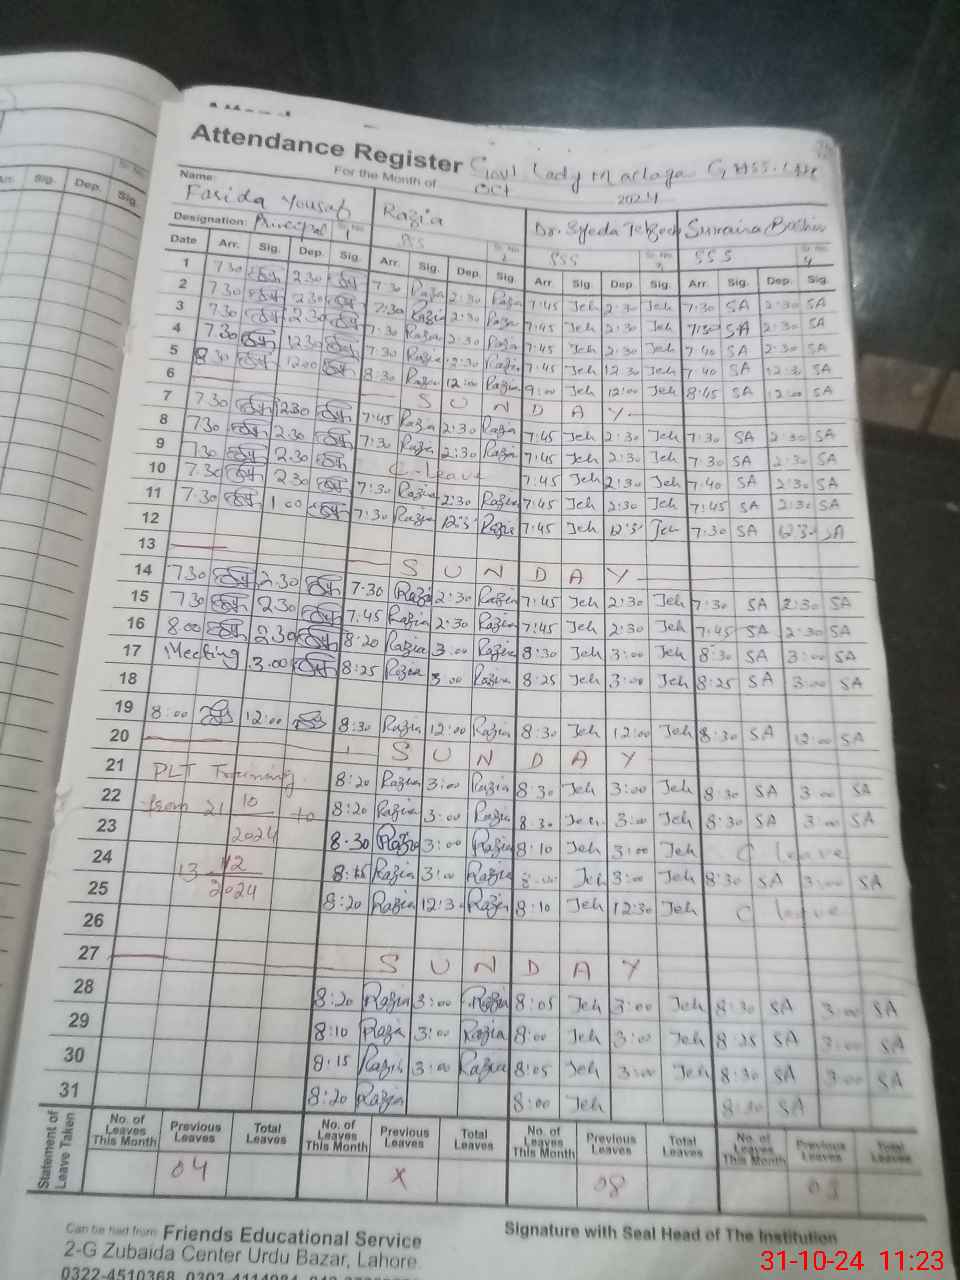 Attendance Register Govt Lady Maclagan GHSS. Lhr
For the Month of Oct 2024
Name: Farida Yousaf Razia Dr. Syeda Sumaira Bashir
Designation: Principal Sr. No. 1 SSS Sr. No. 2 SSS Sr. No. 3 SSS Sr. No. 4
Date Arr. Sig. Dep. Sig. Arr. Sig. Dep. Sig. Arr. Sig. Dep. Sig. Arr. Sig. Dep. Sig.
1 7 30 2 30 7:30 Razia 2:30 Razia 7:45 Jeh 2:30 Jeh 7:30 SA 2:30 SA
2 7 30 2 30 7:30 Razia 2:30 Razia 7:45 Jeh 2:30 Jeh 7:30 SA 2:30 SA
3 7 30 2 30 7:30 Razia 2:30 Razia 7:45 Jeh 2:30 Jeh 7:40 SA 2:30 SA
4 7.30 12 30 7:30 Razia 12:30 Razia 7:45 Jeh 12:30 Jeh 7:40 SA 12:30 SA
5 8 30 12 00 8:30 Razia 12:00 Razia 9:00 Jeh 12:00 Jeh 8:45 SA 12:00 SA
6 S U N D A Y
7 7 30 2 30 7:45 Razia 2:30 Razia 7:45 Jeh 2:30 Jeh 7:30 SA 2:30 SA
8 7 30 2.30 7:30 Razia 2:30 Razia 7:45 Jeh 2:30 Jeh 7:30 SA 2:30 SA
9 7.30 2.30 C-leave 7:45 Jeh 2:30 Jeh 7:40 SA 2:30 SA
10 7.30 2 30 7:30 Razia 2:30 Razia 7:45 Jeh 2:30 Jeh 7:45 SA 2:30 SA
11 7.30 1 00 7:30 Razia 12:3 Razia 7:45 Jeh 12:3 Jeh 7:30 SA 12:30 SA
12
13 S U N D A Y
14 7 30 2.30 7:30 Razia 2:30 Razia 7:45 Jeh 2:30 Jeh 7:30 SA 2:30 SA
15 7 30 2 30 7:45 Razia 2:30 Razia 7:45 Jeh 2:30 Jeh 7:45 SA 2:30 SA
16 8 00 2 30 8:20 Razia 3:00 Razia 8:30 Jeh 3:00 Jeh 8:30 SA 3:00 SA
17 Meeting 3.00 8:25 Razia 3:00 Razia 8:25 Jeh 3:00 Jeh 8:25 SA 3:00 SA
18
19 8:00 12:00 8:30 Razia 12:00 Razia 8:30 Jeh 12:00 Jeh 8:30 SA 12:00 SA
20 S U N D A Y
21 PLT Training 8:20 Razia 3:00 Razia 8:30 Jeh 3:00 Jeh 8:30 SA 3:00 SA
22 from 21 10 2024 to 8:20 Razia 3:00 Razia 8:30 Jeh 3:00 Jeh 8:30 SA 3:00 SA
23 8:30 Razia 3:00 Razia 8:10 Jeh 3:00 Jeh C leave
24 13 12 2024 8:15 Razia 3:00 Razia Jeh 3:00 Jeh 8:30 SA 3:00 SA
25 8:20 Razia 12:30 Razia 8:10 Jeh 12:30 Jeh C leave
26
27 S U N D A Y
28 8:20 Razia 3:00 Razia 8:05 Jeh 3:00 Jeh 8:30 SA 3:00 SA
29 8:10 Razia 3:00 Razia 8:00 Jeh 3:00 Jeh 8:25 SA 3:00 SA
30 8:15 Razia 3:00 Razia 8:05 Jeh 3:00 Jeh 8:30 SA 3:00 SA
31 8:20 Razia 8:00 Jeh 8:30 SA
Statement of Leave Taken
No. of Leaves This Month Previous Leaves Total Leaves No. of Leaves This Month Previous Leaves Total Leaves No. of Leaves This Month Previous Leaves Total Leaves No. of Leaves This Month Previous Leaves Total Leaves
04 x 08 03
Can be had from Friends Educational Service Signature with Seal Head of The Institution
2-G Zubaida Center Urdu Bazar, Lahore.
0322-4510368
31-10-24 11:23